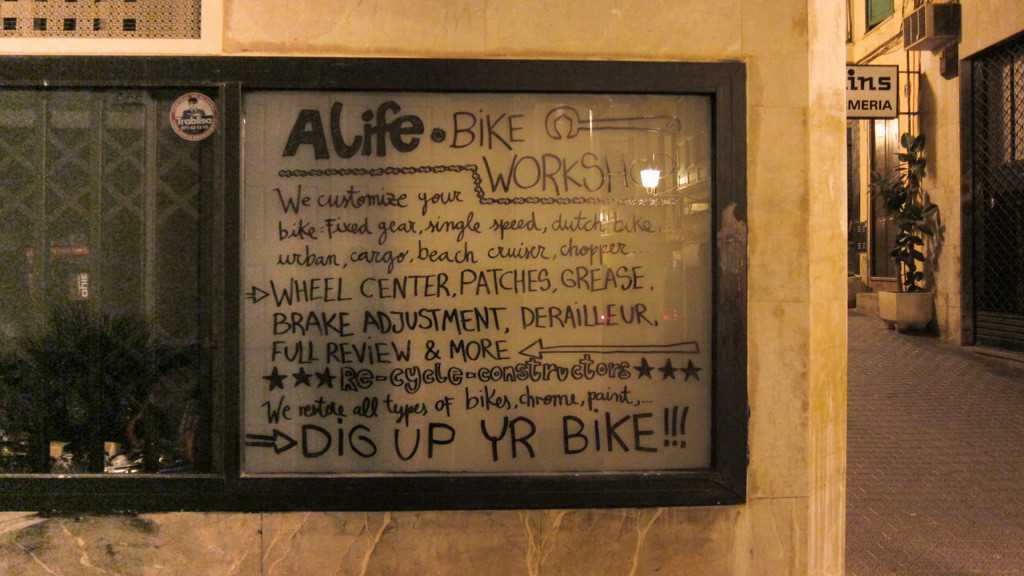 ALife. BIKE
WORKSHOP
We customize your
bike. Fixed gear, single speed, dutch bike,
urban, cargo, beach cruiser, chopper...
WHEEL CENTER, PATCHES, GREASE,
BRAKE ADJUSTMENT, DERAILLEUR,
FULL REVIEW & MORE
Re-cycle-constructors
We restore all types of bikes, chrome, paint,...
DIG UP YR BIKE!!!
Trabloc
ins
MERIA